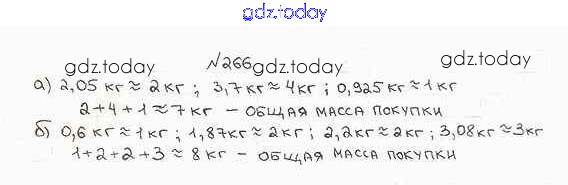 gdz.today
gdz.today №266 gdz.today gdz.today
а) 2,05 кг ≈ 2 кг ; 3,7 кг ≈ 4 кг ; 0,925 кг ≈ 1 кг
2+4+1 ≈ 7 кг – ОБЩАЯ МАССА ПОКУПКИ
б) 0,6 кг ≈ 1 кг ; 1,87 кг ≈ 2 кг ; 2,2 кг ≈ 2 кг ; 3,08 кг ≈ 3 кг
1+2+2+3 ≈ 8 кг – ОБЩАЯ МАССА ПОКУПКИ